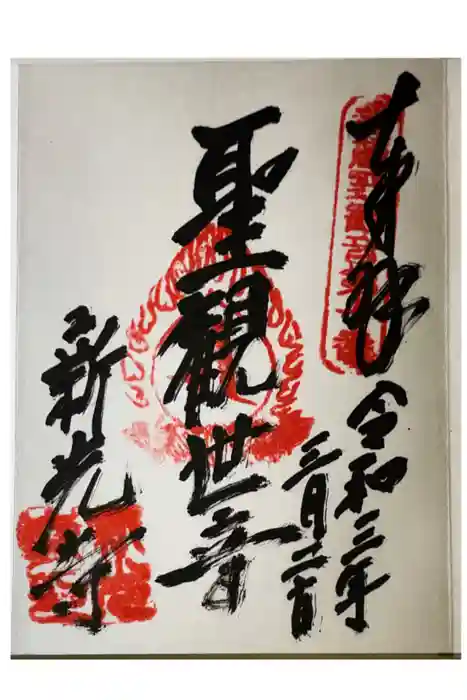 奉拝
令和三年
三月
聖観世音
新光寺